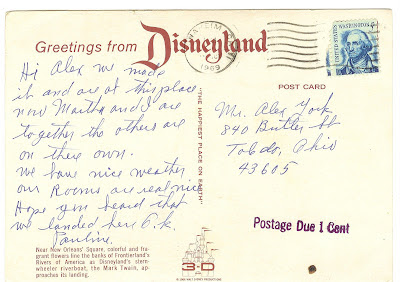 Greetings from Disneyland
1969
UNITED STATES
WASHINGTON 5c
POST CARD
Hi Alex we made
it and are at this place
now Martha and I are
together the others are
on there own.
We have nice weather
our Rooms are real nice
Hope you heard that
we landed here O.k.
Pauline.
"THE HAPPIEST PLACE ON EARTH"
Mr. Alex York
840 Butler St
Toledo, Ohio
43605
Postage Due 1 Cent
Near New Orleans' Square, colorful and fra-
grant flowers line the banks of Frontierland's
Rivers of America as Disneyland's stern-
wheeler riverboat, the Mark Twain, ap-
proaches its landing.
3-D
WALT DISNEY PRODUCTIONS